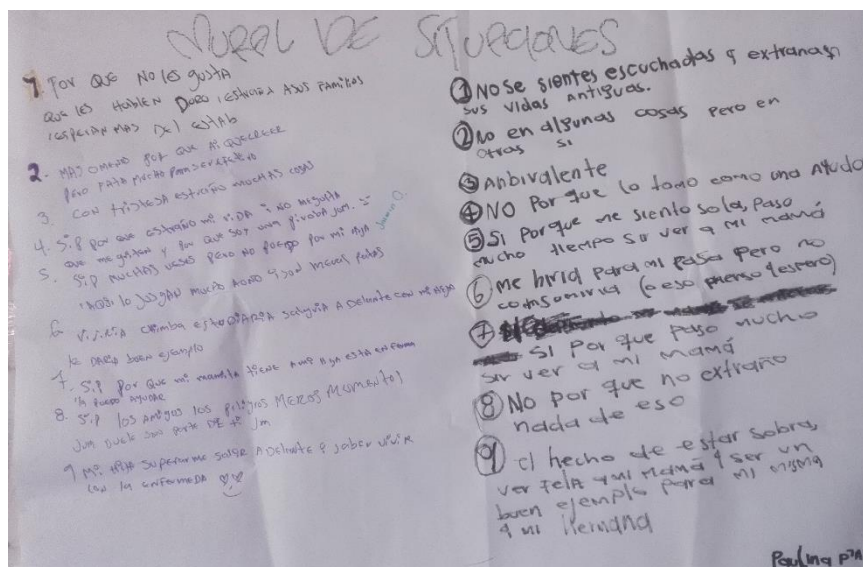 MURAL DE SITUACIONES
1 POR QUE NO LES GUSTA
QUE LES HABLEN DURO ESTRAÑA A SUS FAMILIAS
2. MAS O MENO POR QUE
PERO FALTA MUCHO PARA SER
3. CON TRISTESA ESTRAÑO MUCHAS COSAS
4. S.P POR QUE ESTRAÑO MI VIDA I NO ME GUSTA
QUE ME GRITEN Y POR QUE SOY UNA JUM.
5. S.P MUCHAS VESES PERO NO PUEDO POR MI AGA
AQUI LO JUSGAN MUCHO A UNO
6 CHIMBA ESTUDIARIA SALDRIA ADELANTE CON MI AGA
LE DARIA BUEN EJEMPLO
7. S.P POR QUE MI MAMITA TIENE A MI AGA ESTA ENFERMA
LA PUEDO AYUDAR
8. S.P LOS AMIGOS LOS PELIGROS MEROS MUMENTOS
JUM DUELE SON PARTE DE TI JM
9 MI SUPERARME SALIR ADELANTE Y SABER VIVIR
CON LA ENFERMEDA
① NO Se sientes escuchadas y extrañas
sus vidas antiguas.
② No en algunas cosas pero en
otras si
③ Anbivalente
④ NO Por que lo tomo como una ayuda
⑤ Si Porque me siento sola, Paso
mucho tiempo sir ver a mi mamá
⑥ me hiria para mi casa Pero no
comsomiria (o eso pienso y espero)
⑦
Si Por que paso mucho
sir ver a mi mamá
⑧ No por que no extraño
nada de eso
⑨ El hecho de estar sobra,
ver feliz a mi mamá y ser un
buen ejemplo para mi misma
y mi Hermana
Paulina